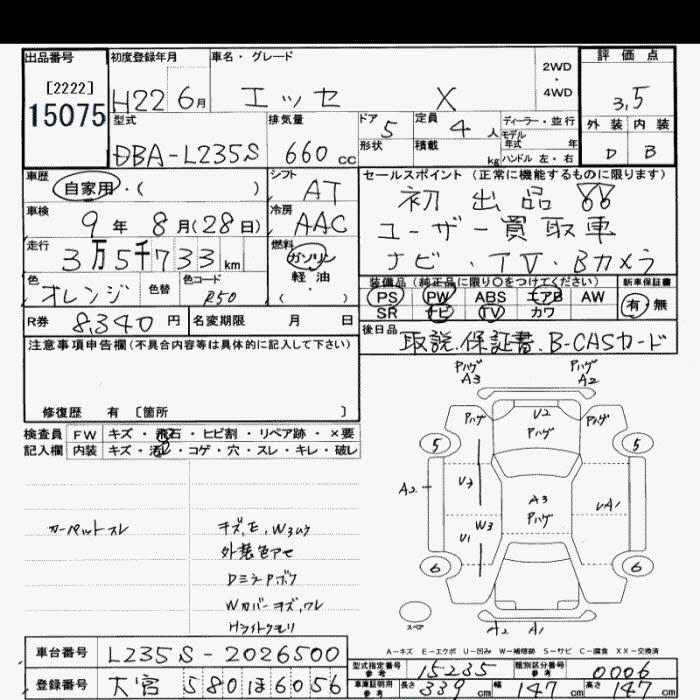 出品番号 初度登録年月 車名・グレード 2WD・4WD 評価点
[2222] 15075 H22 6月 エッセ X 3,5
型式 排気量 ドア 5 定員 4人 ディーラー・並行 外装 内装
DBA-L235S 660cc 形状 積載 kg モデル年式 年 ハンドル 左・右 D B
車歴 自家用・( ) シフト AT セールスポイント(正常に機能するものに限ります)
初出品
車検 9年 8月(28日) 冷房 AAC ユーザー買取車
走行 3万5千733km 燃料 ガソリン 軽油 ( ) ナビ・TV・Bカメラ
色 オレンジ 色替 色コード R50 装備品(純正品に限り○をつけてください) 新車保証書
PS PW ABS エアB AW 有・無
SR ナビ TV カワ
R券 8,340円 名変期限 月 日 後日品 取説.保証書.B-CASカード
注意事項申告欄(不具合内容等は具体的に記入して下さい)
修復歴 有 [箇所 ]
検査員 FW キズ・飛石・ヒビ割・リペア跡・×要
記入欄 内装 キズ・汚れ・コゲ・穴・スレ・キレ・破レ
カーペットスレ
キズ,E,W3ムラ
外装色アセ
DミラーPボケ
Wカバーキズ,ワレ
Hライトクモリ
Pハゲ A3 Pハゲ A2
Pハゲ U2 Pハゲ Pハゲ
5 5
A2 U3 A3 Pハゲ UA1
U1 W3
6 6
スペア A2 A1
A-キズ E-エクボ U-凹み W-補修跡 S-サビ C-腐食 XX-交換済
車台番号 L235S-2026500
型式指定番号 参考 15235 類別区分番号 参考 0006
登録番号 大宮 580 ほ 6056
車庫証明用 参考 長さ 339cm 幅 147cm 高さ 147cm